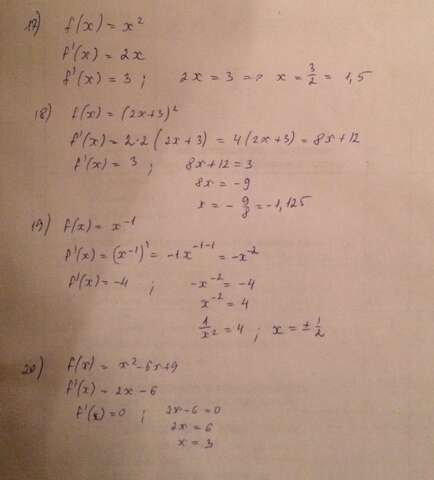 17) f(x) = x²
f'(x) = 2x
f'(x) = 3 ; 2x = 3 => x = 3/2 = 1,5
18) f(x) = (2x+3)²
f'(x) = 2·2 (2x+3) = 4(2x+3) = 8x+12
f'(x) = 3 ; 8x+12 = 3
8x = -9
x = - 9/8 = -1,125
19) f(x) = x⁻¹
f'(x) = (x⁻¹)' = -1x⁻¹⁻¹ = -x⁻²
f'(x) = -4 ; -x⁻² = -4
x⁻² = 4
1/x² = 4 ; x = ± 1/2
20) f(x) = x²-6x+9
f'(x) = 2x - 6
f'(x) = 0 ; 2x-6 = 0
2x = 6
x = 3